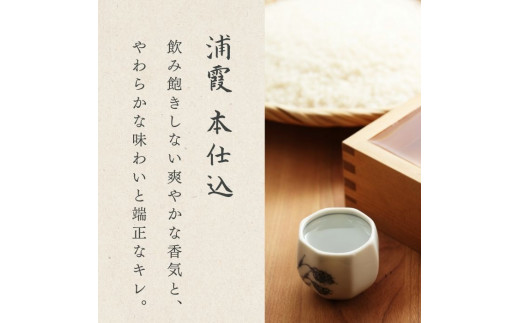 浦霞 本仕込
飲み飽きしない爽やかな香気と、
やわらかな味わいと端正なキレ。